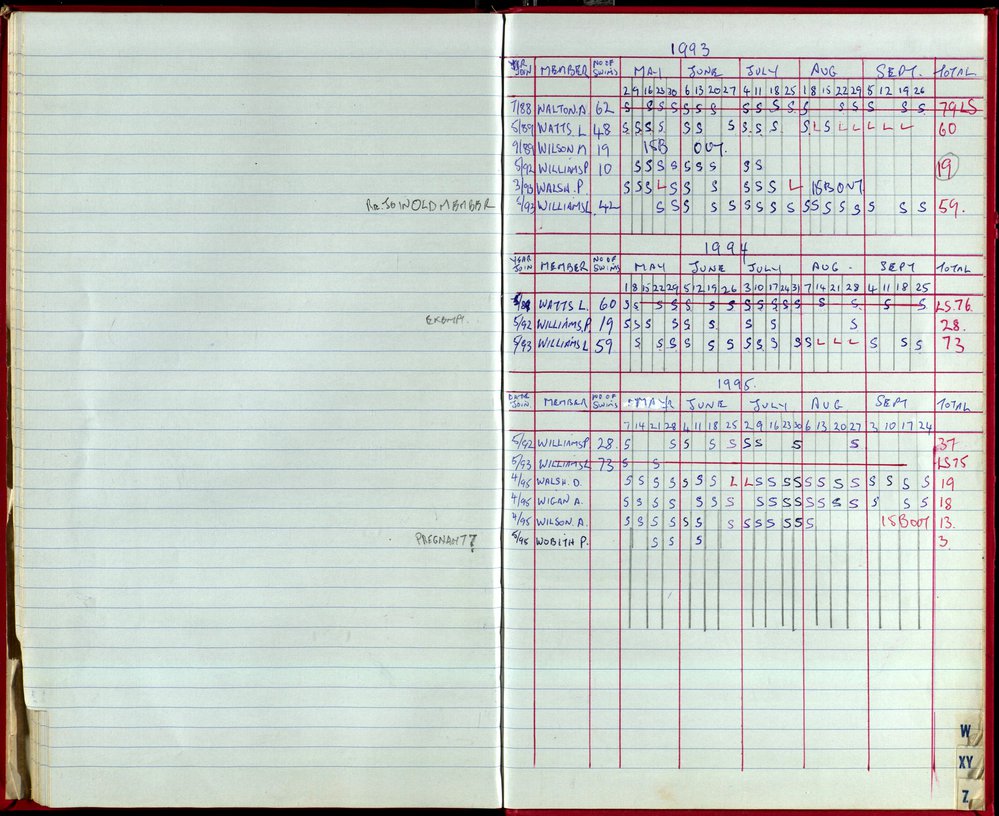 1993
YEAR JOIN MEMBER NO OF SWIMS MAY JUNE JULY AUG SEPT. TOTAL
2 9 16 23 30 6 13 20 27 4 11 18 25 1 8 15 22 29 5 12 19 26
7/88 WALTON.A 62 S S S S S S S S S S S S S S S S S 79 LS
5/89 WATTS L 48 S S S S S S S S S S S L S L L L L L 60
9/89 WILSON M 19 ISB OUT.
5/92 WILLIAMS P 10 S S S S S S S S S 19
3/93 WALSH.P. S S S L S S S S S S L ISB OUT
Re. JOIN OLD MEMBER 5/93 WILLIAMS L. 42 S S S S S S S S S S S S S S S S S 59.
1994
YEAR JOIN MEMBER NO OF SWIMS MAY JUNE JULY AUG. SEPT TOTAL
1 8 15 22 29 5 12 19 26 3 10 17 24 31 7 14 21 28 4 11 18 25
5/89 WATTS L. 60 S S S S S S S S S S S S S S S S LS.76.
EXEMPT. 5/92 WILLIAMS.P. 19 S S S S S S S S S 28.
5/93 WILLIAMS L 59 S S S S S S S S S S S L L L S S S 73
1995.
DATE JOIN. MEMBER NO OF SWIMS MAY JUNE JULY AUG SEPT TOTAL
7 14 21 28 4 11 18 25 2 9 16 23 30 6 13 20 27 3 10 17 24
5/92 WILLIAMS P. 28. S S S S S S S S S 37
5/93 WILLIAMS L 73 S S LS 75
4/95 WALSH. D. S S S S S S S L L S S S S S S S S S S S S 19
4/95 WIGAN A. S S S S S S S S S S S S S S S S S S 18
4/95 WILSON. A. S S S S S S S S S S S S S S ISB OUT 13.
PREGNANT? 5/95 WOBITH P. S S S 3.
W
XY
Z